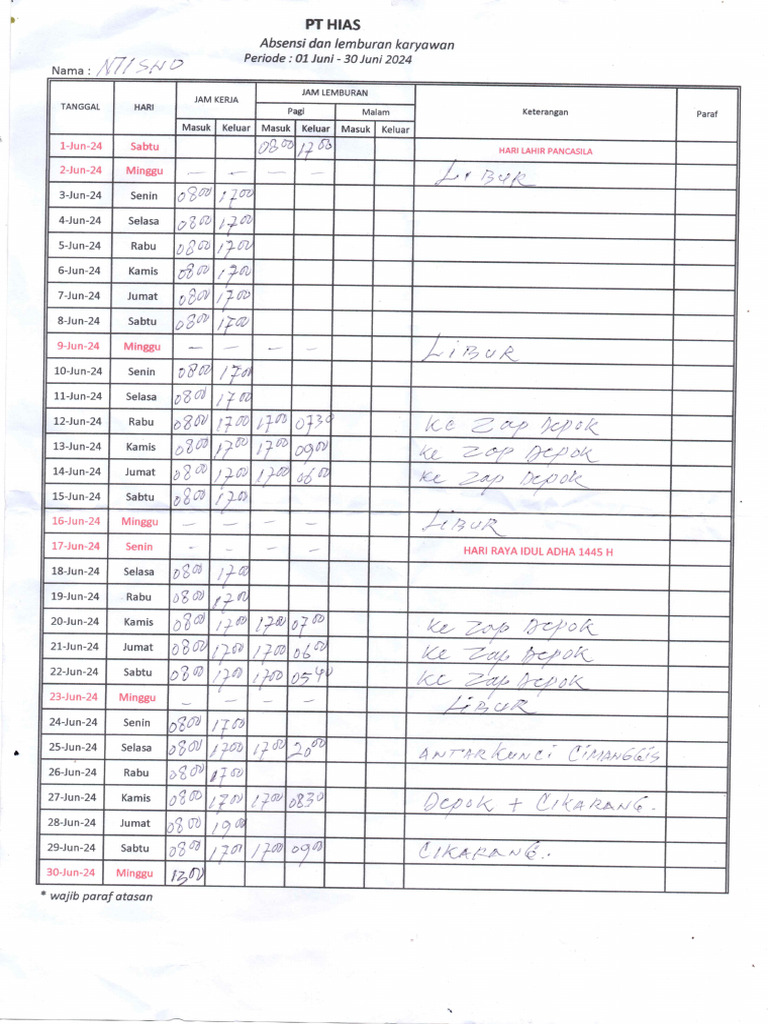 PT HIAS
Absensi dan lemburan karyawan
Periode : 01 Juni - 30 Juni 2024
Nama :
TANGGAL HARI JAM KERJA JAM LEMBURAN Keterangan Paraf
Pagi Malam
Masuk Keluar Masuk Keluar Masuk Keluar
1-Jun-24 Sabtu 0800 1700 HARI LAHIR PANCASILA
2-Jun-24 Minggu — — — — LIBUR
3-Jun-24 Senin 0800 1700
4-Jun-24 Selasa 0800 1700
5-Jun-24 Rabu 0800 1700
6-Jun-24 Kamis 0800 1700
7-Jun-24 Jumat 0800 1700
8-Jun-24 Sabtu 0800 1700
9-Jun-24 Minggu — — — — LIBUR
10-Jun-24 Senin 0800 1700
11-Jun-24 Selasa 0800 1700
12-Jun-24 Rabu 0800 1700 1700 0730 Ke Zap Depok
13-Jun-24 Kamis 0800 1700 1700 0900 Ke Zap Depok
14-Jun-24 Jumat 0800 1700 1700 0600 Ke Zap Depok
15-Jun-24 Sabtu 0800 1700
16-Jun-24 Minggu — — — — LIBUR
17-Jun-24 Senin - - - - HARI RAYA IDUL ADHA 1445 H
18-Jun-24 Selasa 0800 1700
19-Jun-24 Rabu 0800 1700
20-Jun-24 Kamis 0800 1700 1700 0700 Ke Zap Depok
21-Jun-24 Jumat 0800 1700 1700 0600 Ke Zap Depok
22-Jun-24 Sabtu 0800 1700 1700 0540 Ke Zap Depok
23-Jun-24 Minggu — — — — LIBUR
24-Jun-24 Senin 0800 1700
25-Jun-24 Selasa 0800 1700 1700 2000 ANTAR KUNCI CIMANGGIS
26-Jun-24 Rabu 0800 1700
27-Jun-24 Kamis 0800 1700 1700 0830 Depok + CIKARANG.
28-Jun-24 Jumat 0800 1900
29-Jun-24 Sabtu 0800 1700 1700 0900 CIKARANG..
30-Jun-24 Minggu 1300
* wajib paraf atasan